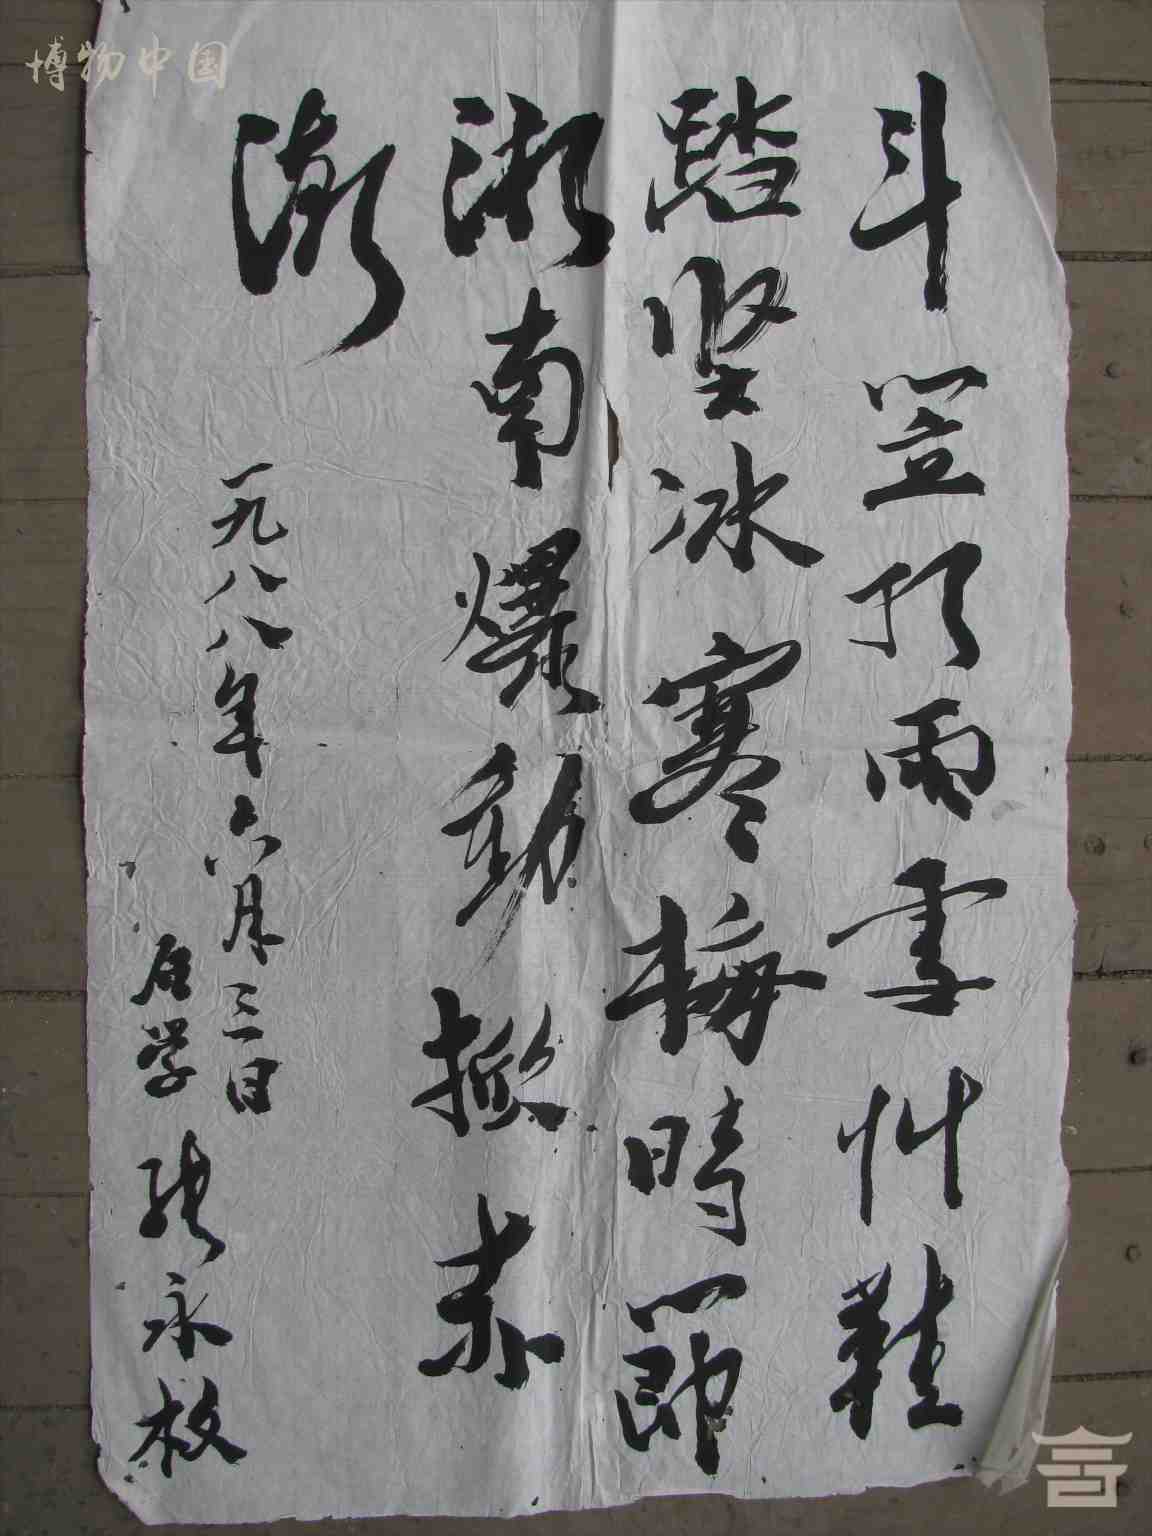 博物中国
斗笠顶雨雪艸鞋
踏坚冰寒梅時節
湘南爆動掀赤
潮
一九八八年六月三日
后学张永枚